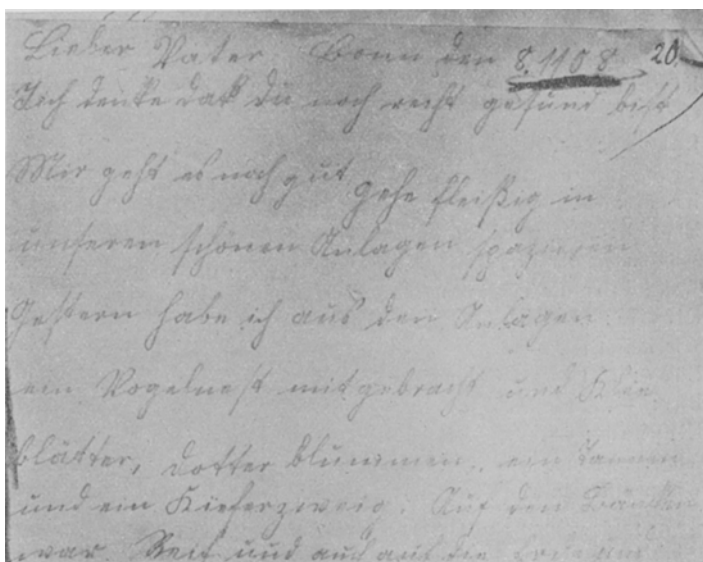 Lieber Vater Bonn den 8.1108 20.
Ich denke daß du noch recht gesund bist
Mir geht es noch gut gehe fleißig in
unseren schönen Anlagen spazieren
Gestern habe ich aus den Anlagen
ein Vogelnest mitgebracht und Klee
blätter, dotter blummen, ein Tannen
und ein Kieferzweig. Auf den Bänken
war Reif und auch auf die Erde und